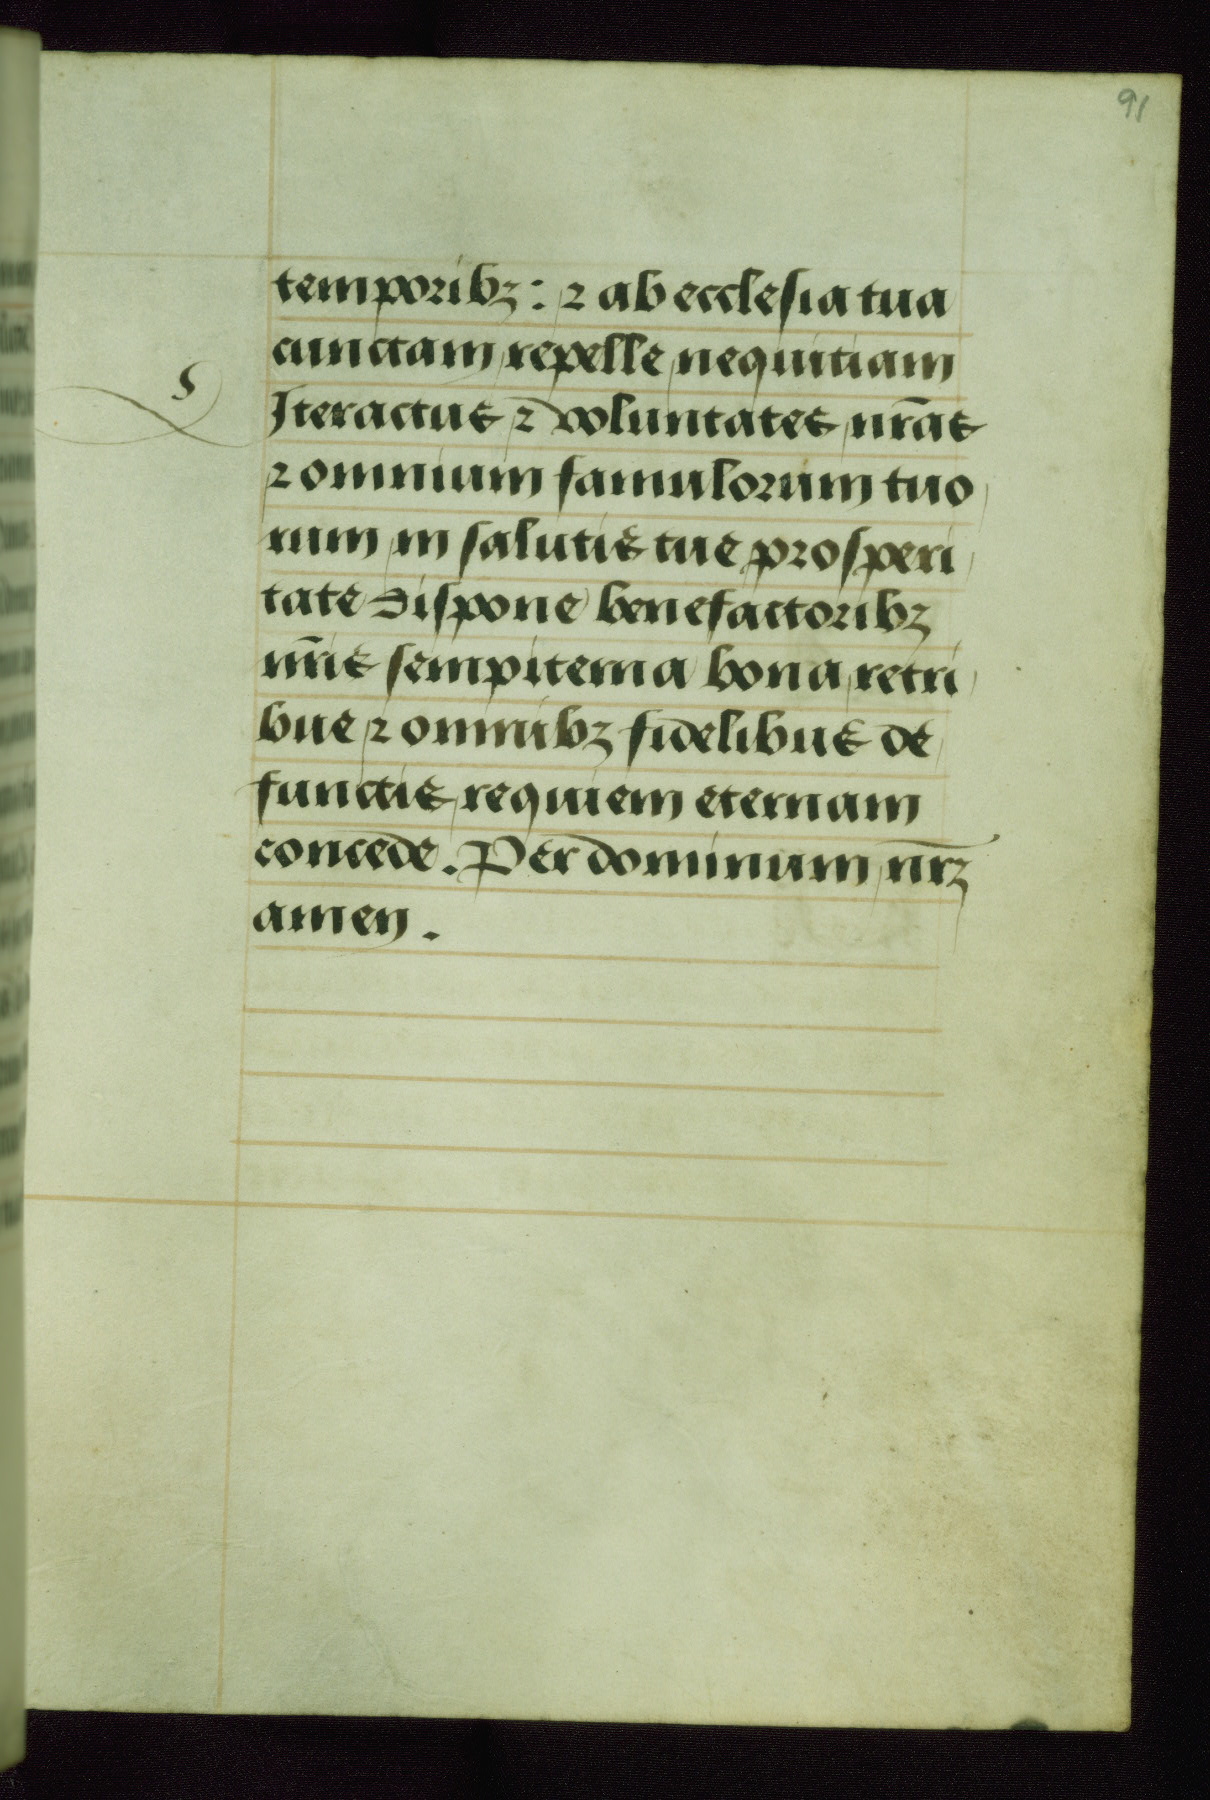 91
temporibꝫ : ⁊ ab ecclesia tua
cunctam repelle nequitiam
s
Iter actus ⁊ voluntates nr̄as
⁊ omnium famulorum tuo
rum in salutis tue prosperi
tate dispone benefactoribꝫ
nr̄is sempiterna bona retri
bue ⁊ omnibꝫ fidelibus de
functis requiem eternam
concede. Per dominum nr̄ꝫ
amen.